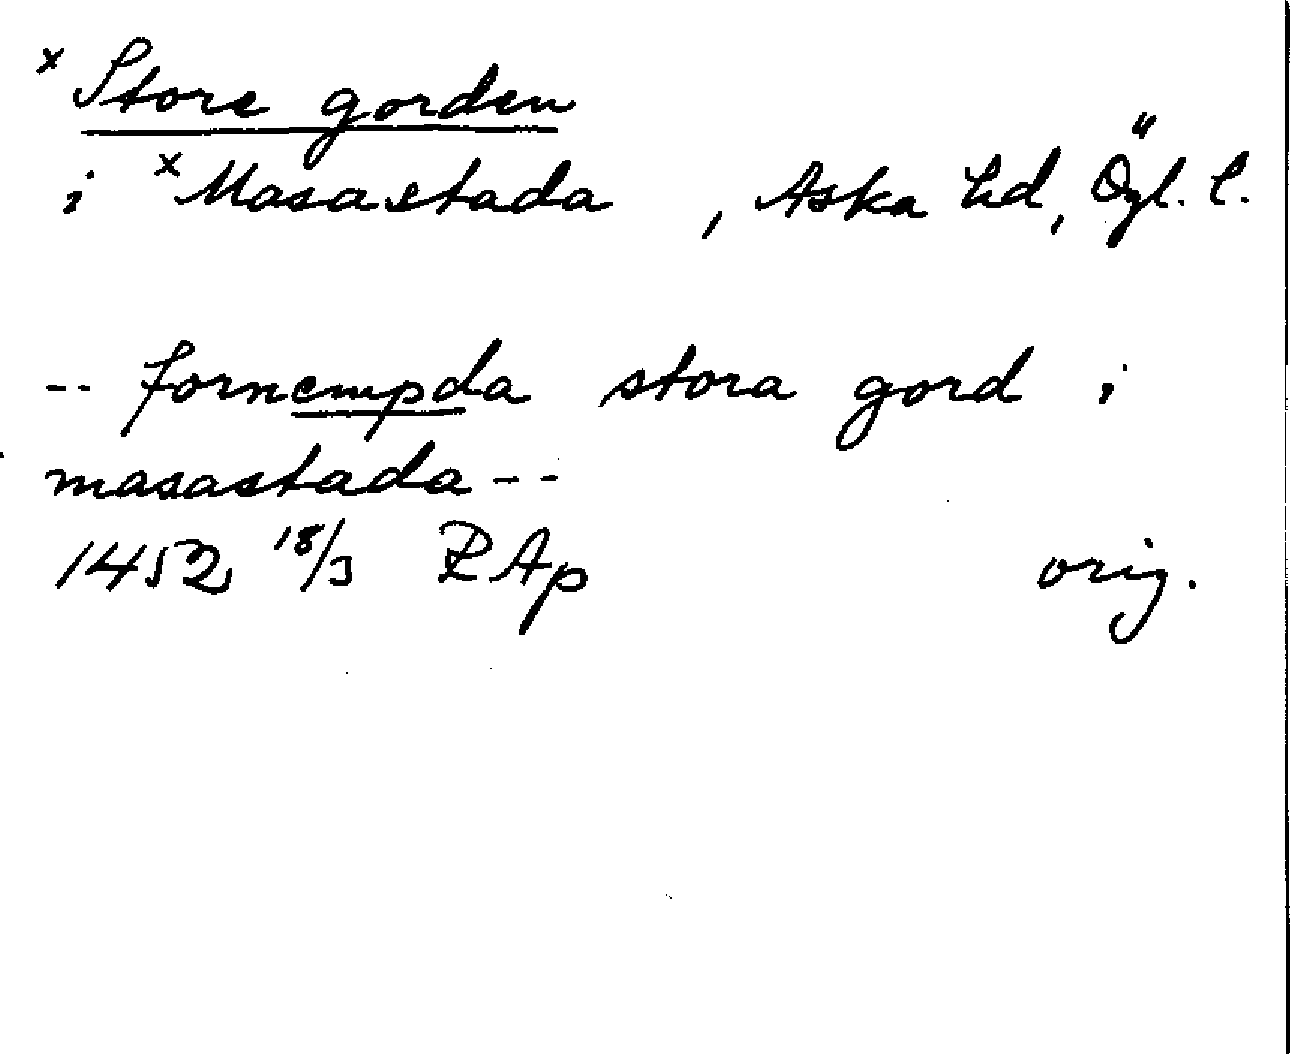 x Store gorden
i x Masastada , Aska hd, Ögl. l.
-- fornempda stora gord i
masastada --
1452 18/3 RAp orig.